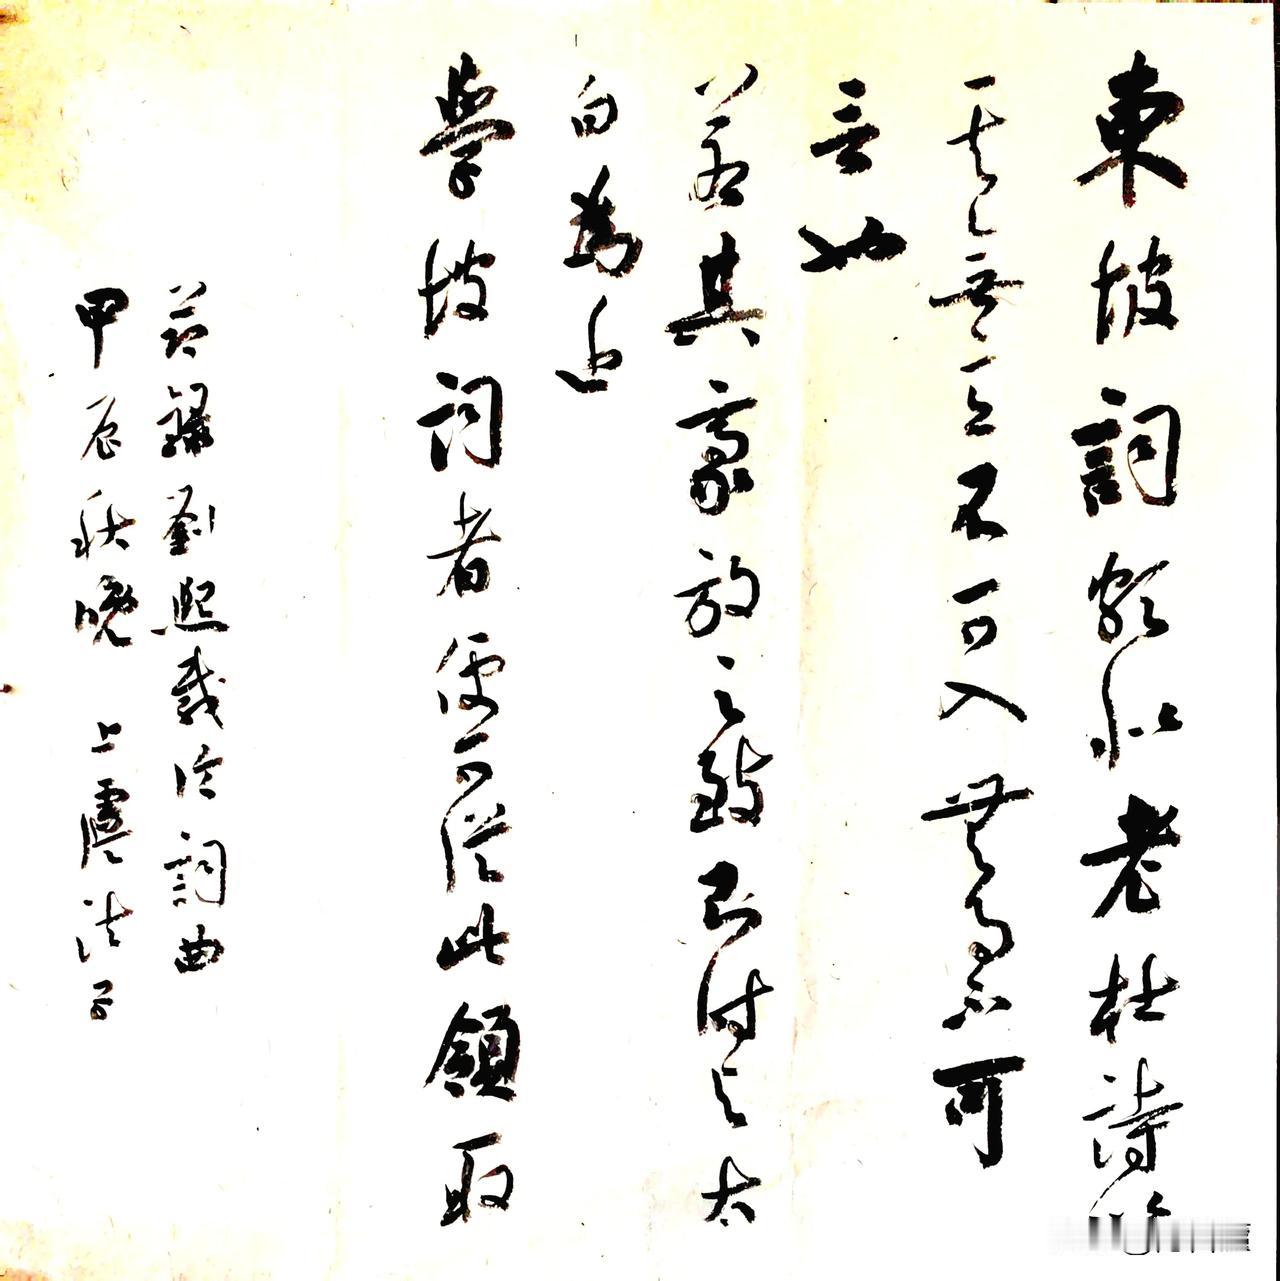 東坡詞頗似老杜詩
其無意不可入無事不可
言也
若其豪放之致則時與太
白為近
學坡詞者便可從此領取
節錄劉熙載論詞曲
甲辰秋晚 上虞法子